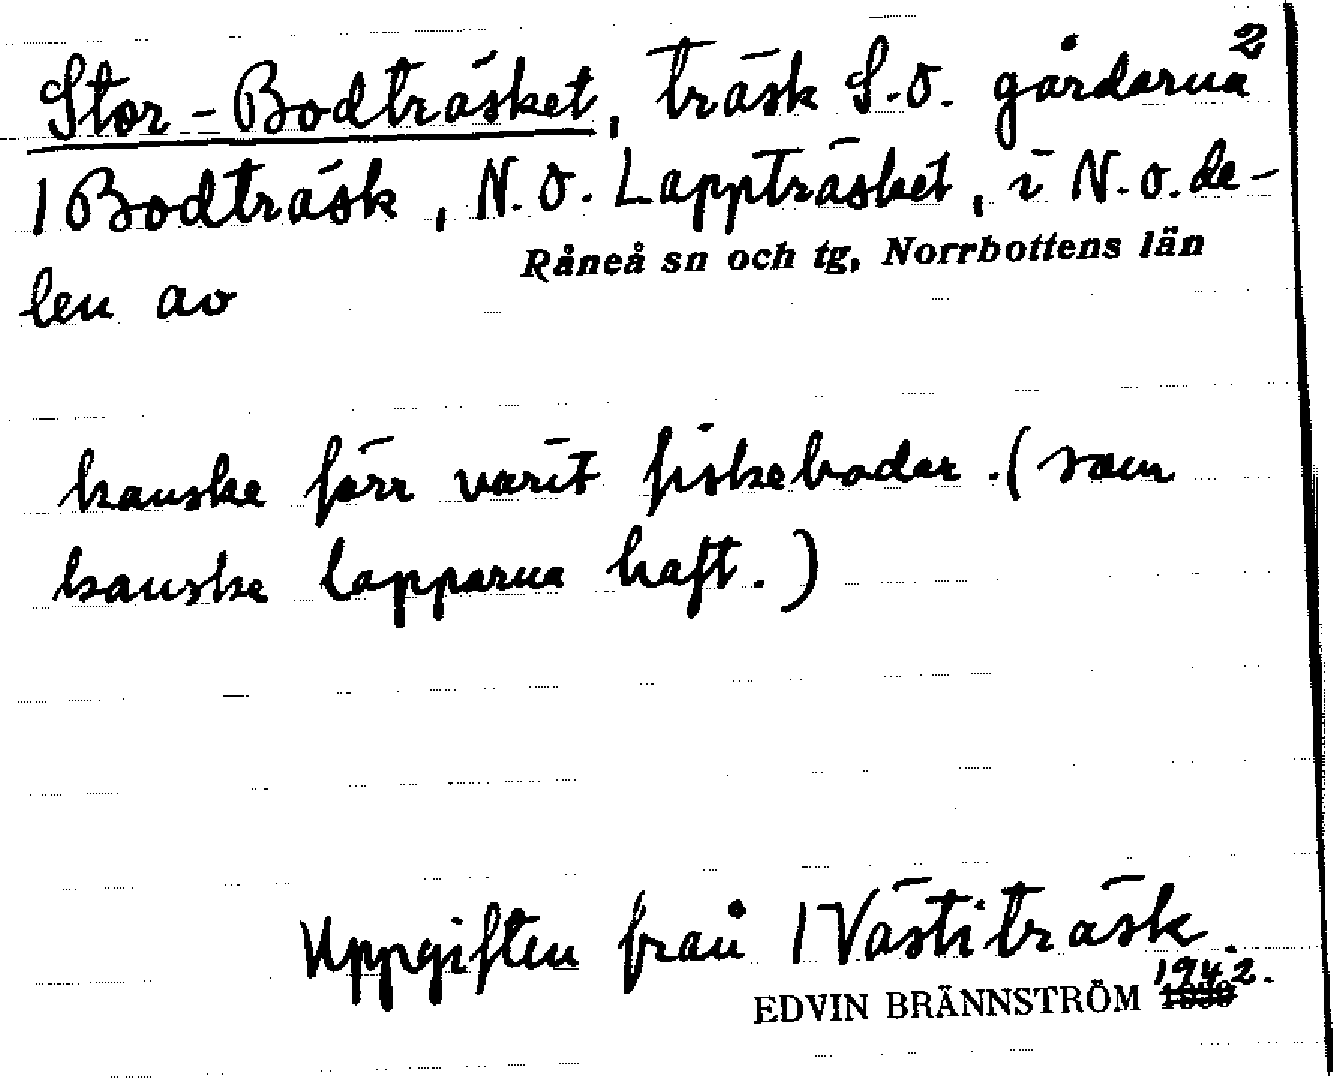 2
Stor-Bodträsket, träsk S.O. gårdarna
/Bodträsk, N.O. Lappträsket, i N.O. de-
len av
Råneå sn och tg, Norrbottens län
kanske förr varit fiskebodar. (som
kanske lapparna haft.)
Uppgiften från /Västiträsk.
EDVIN BRÄNNSTRÖM 1942.